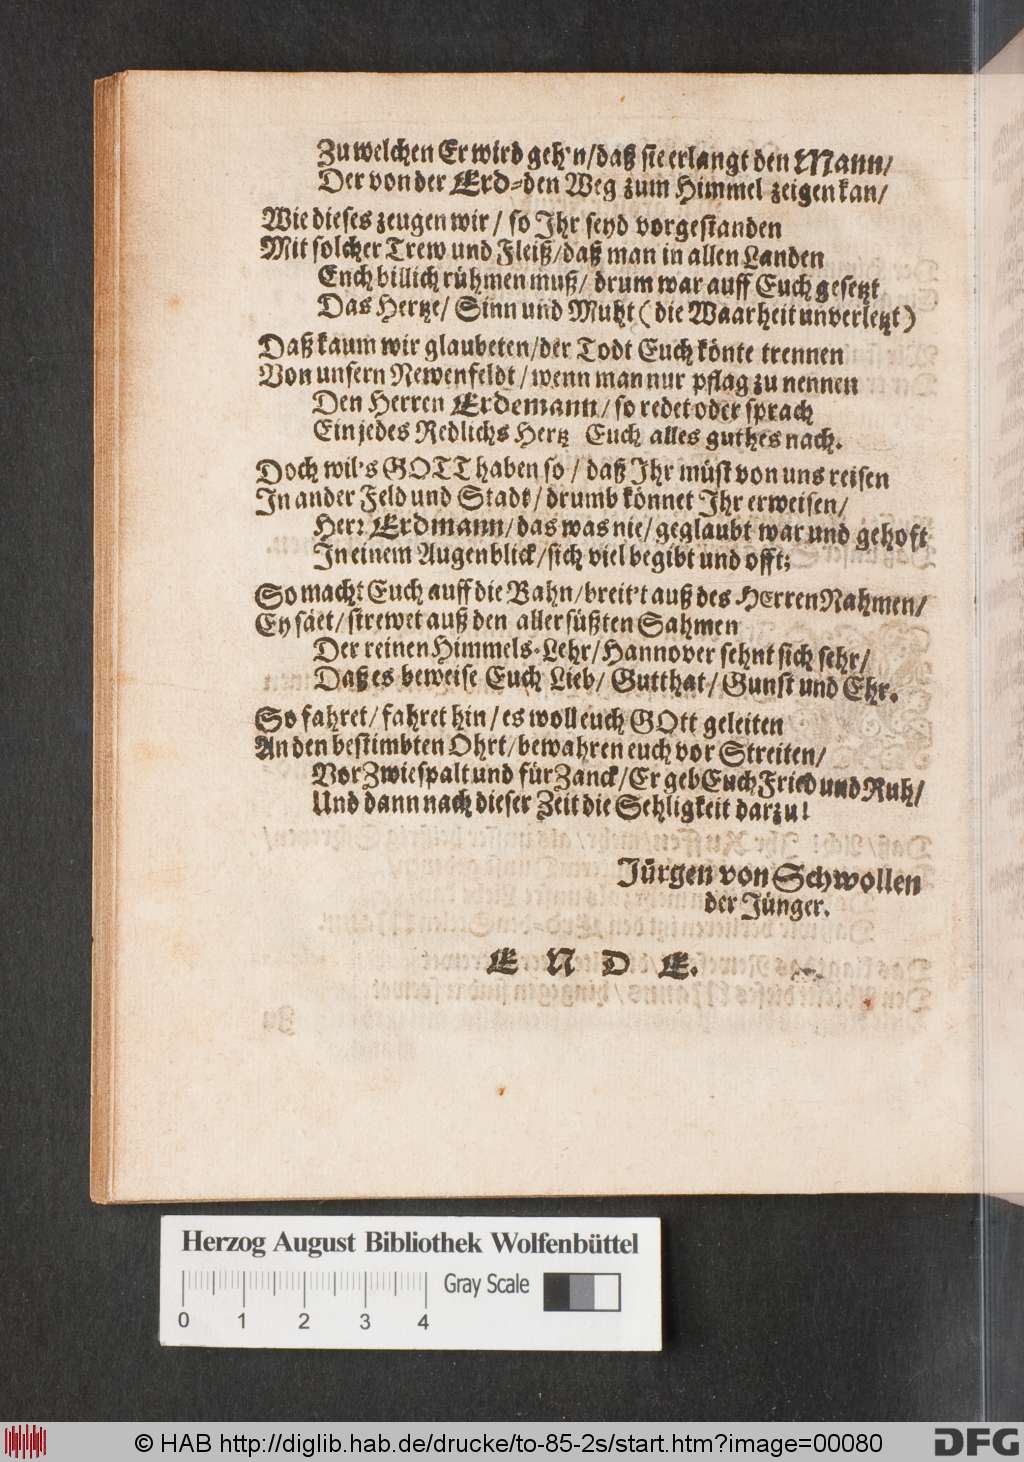 Zu welchen Er wird geh'n/daß sie erlangt den Mann/
Der von der Erd=den Weg zum Himmel zeigen kan/
Wie dieses zeugen wir / so Ihr seyd vorgestanden
Mit solcher Trew und Fleiß/daß man in allen Landen
Euch billich rühmen muß/ drum war auff Euch gesetzt
Das Hertze/ Sinn und Muht ( die Waarheit unverletzt )
Daß kaum wir glaubeten/der Todt Euch könte trennen
Von unsern Newenfeldt / wenn man nur pflag zu nennen
Den Herren Erdemann/ so redet oder sprach
Ein jedes Redlichs Hertz Euch alles guthes nach.
Doch wil's GOTT haben so / daß Ihr müst von uns reisen
In ander Feld und Stadt/ drumb könnet Ihr erweisen/
Herr Erdmann/das was nie/ geglaubt war und gehoft
In einem Augenblick/sich viel begibt und offt;
So macht Euch auff die Bahn/breit't auß des HErren Nahmen/
Ey säet/ strewet auß den aller süßten Sahmen
Der reinen Himmels=Lehr/Hannover sehnt sich sehr/
Daß es beweise Euch Lieb/ Gutthat/ Gunst und Ehr.
So fahret/ fahret hin / es woll euch GOtt geleiten
An den bestimbten Ohrt/bewahren euch vor Streiten/
Vor Zwiespalt und für Zanck/Er geb Euch Fried und Ruh/
Und dann nach dieser Zeit die Sehligkeit darzu!
Jürgen von Schwollen
der Jünger.
E N D E.
Herzog August Bibliothek Wolfenbüttel
Gray Scale
0 1 2 3 4
© HAB http://diglib.hab.de/drucke/to-85-2s/start.htm?image=00080
DFG